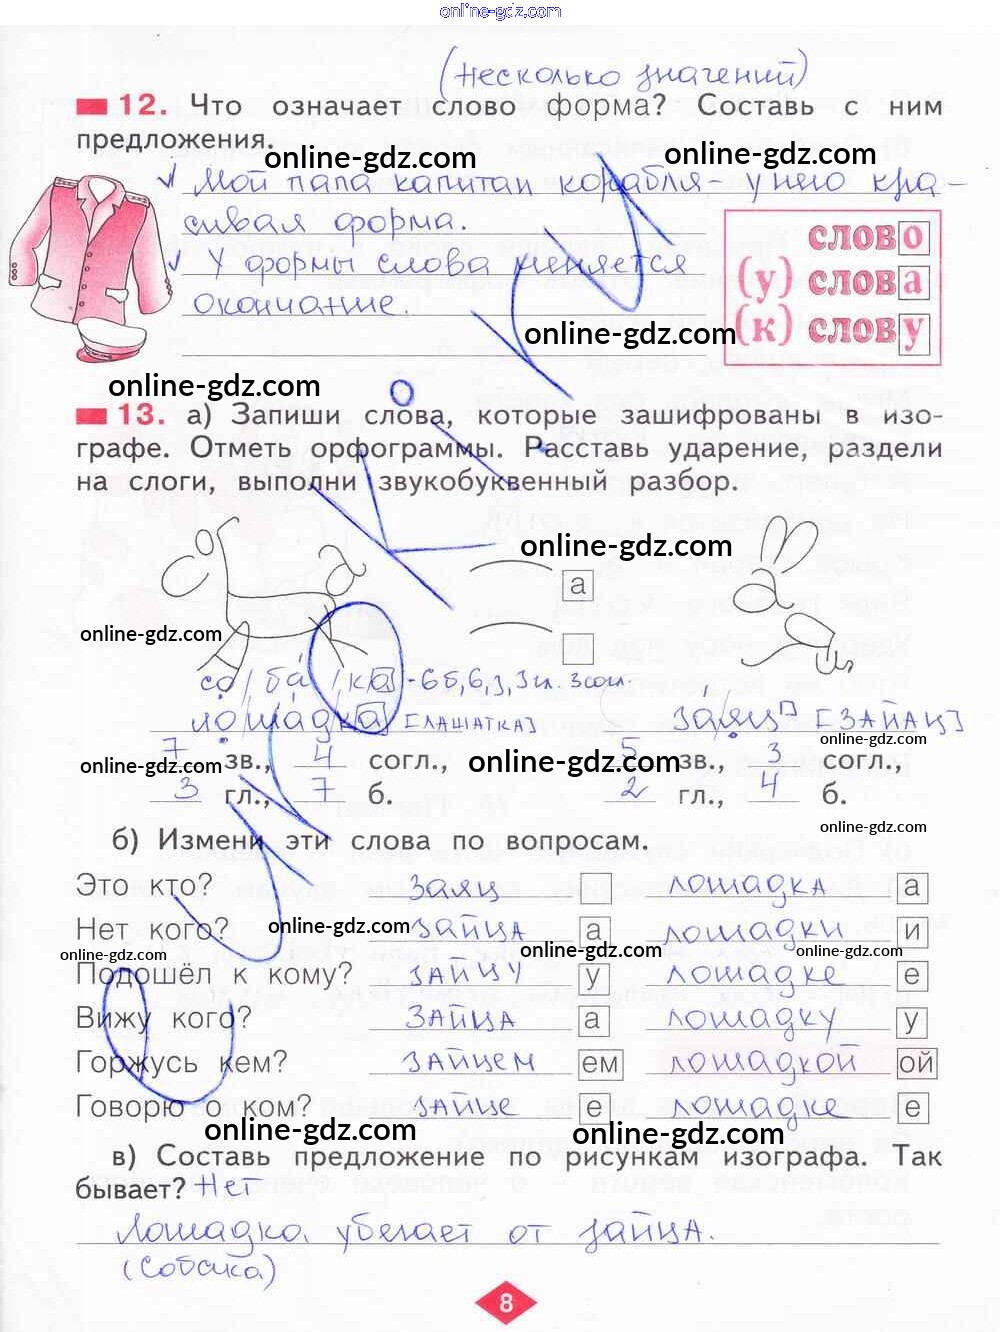 online-gdz.com
(несколько значений)
12. Что означает слово форма? Составь с ним
предложения.
online-gdz.com online-gdz.com
Мой папа капитан корабля у него кра-
сивая форма.
слово
У формы слова меняется
(у) слова
окончание.
(к) слову
online-gdz.com
online-gdz.com
13. а) Запиши слова, которые зашифрованы в изо-
графе. Отметь орфограммы. Расставь ударение, раздели
на слоги, выполни звукобуквенный разбор.
online-gdz.com
а
online-gdz.com
со/ба/ка - 6б, 6з, 3гл. 3согл.
лошадка [ЛАШАТКА] заяц [ЗАЙАЦ]
online-gdz.com
7 зв., 4 согл., 5 зв., 3 согл.,
online-gdz.com online-gdz.com
3 гл., 7 б. 2 гл., 4 б.
online-gdz.com
б) Измени эти слова по вопросам.
Это кто? заяц лошадка а
Нет кого? зайца а лошадки и
online-gdz.com online-gdz.com
online-gdz.com online-gdz.com
Подошёл к кому? зайцу у лошадке е
Вижу кого? зайца а лошадку у
Горжусь кем? зайцем ем лошадкой ой
Говорю о ком? зайце е лошадке е
online-gdz.com online-gdz.com
в) Составь предложение по рисункам изографа. Так
бывает? Нет
Лошадка убегает от зайца.
(собака)
8